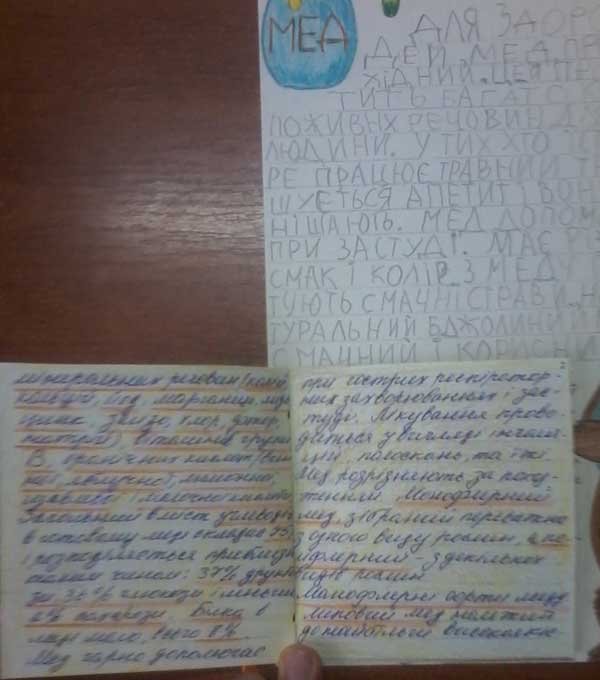 МЕД
ДЛЯ ЗДОРО
ДЕЙ. МЕД ПР
ХІДНИЙ. ЦЕЙ
ТИТЬ БАГАТО К
ПОЖИВНХ РЕЧОВИН ДЛ
ЛЮДИНИ. У ТИХ ХТО ЇС
РЕ ПРАЦЮЄ ТРАВНИЙ Т
ШУЄТЬСЯ АПЕТИТ І ВОН
НІШАЮТЬ. МЕД ДОПОМ
ПРИ ЗАСТУДІ. МАЄ РІЗ
СМАК І КОЛІР. З МЕДУ
ТУЮТЬ СМАЧНІ СТРАВИ. Н
ТУРАЛЬНИЙ БДЖОЛИНИЙ
СМАЧНИЙ І КОРИСНИ
мінеральних речовин (калій
кальцій, йод, марганець, мідь
цинк, залізо, хлор, фтор,
натрій), вітамінів групи
В, органічних кислот (вин-
ної, яблучної, лимонної,
щавлевої і молочної кислоти
Загальний вміст углеводів
в сотовому меді складає 75%
і розподіляється приблизно
таким чином: 37% фрукто
зи, 36% глюкози і менше
2% сахарози. Білка в
меді мало, всього
Мед гарно допомагає
2
при гострих респіратор-
них захворюваннях і зас-
туді. Лікування прово-
диться у вигляді інгаля-
цій, полоскань, та їжі
Мед розрізняють за похо-
дженням. Монофлерний
мед, зібраний переважно
з одного виду рослин, а по-
ліфлерний - з декількох
видів рослин
Монофлерні сорти меду
Липовий мед належить
до найбільш високоякіс-